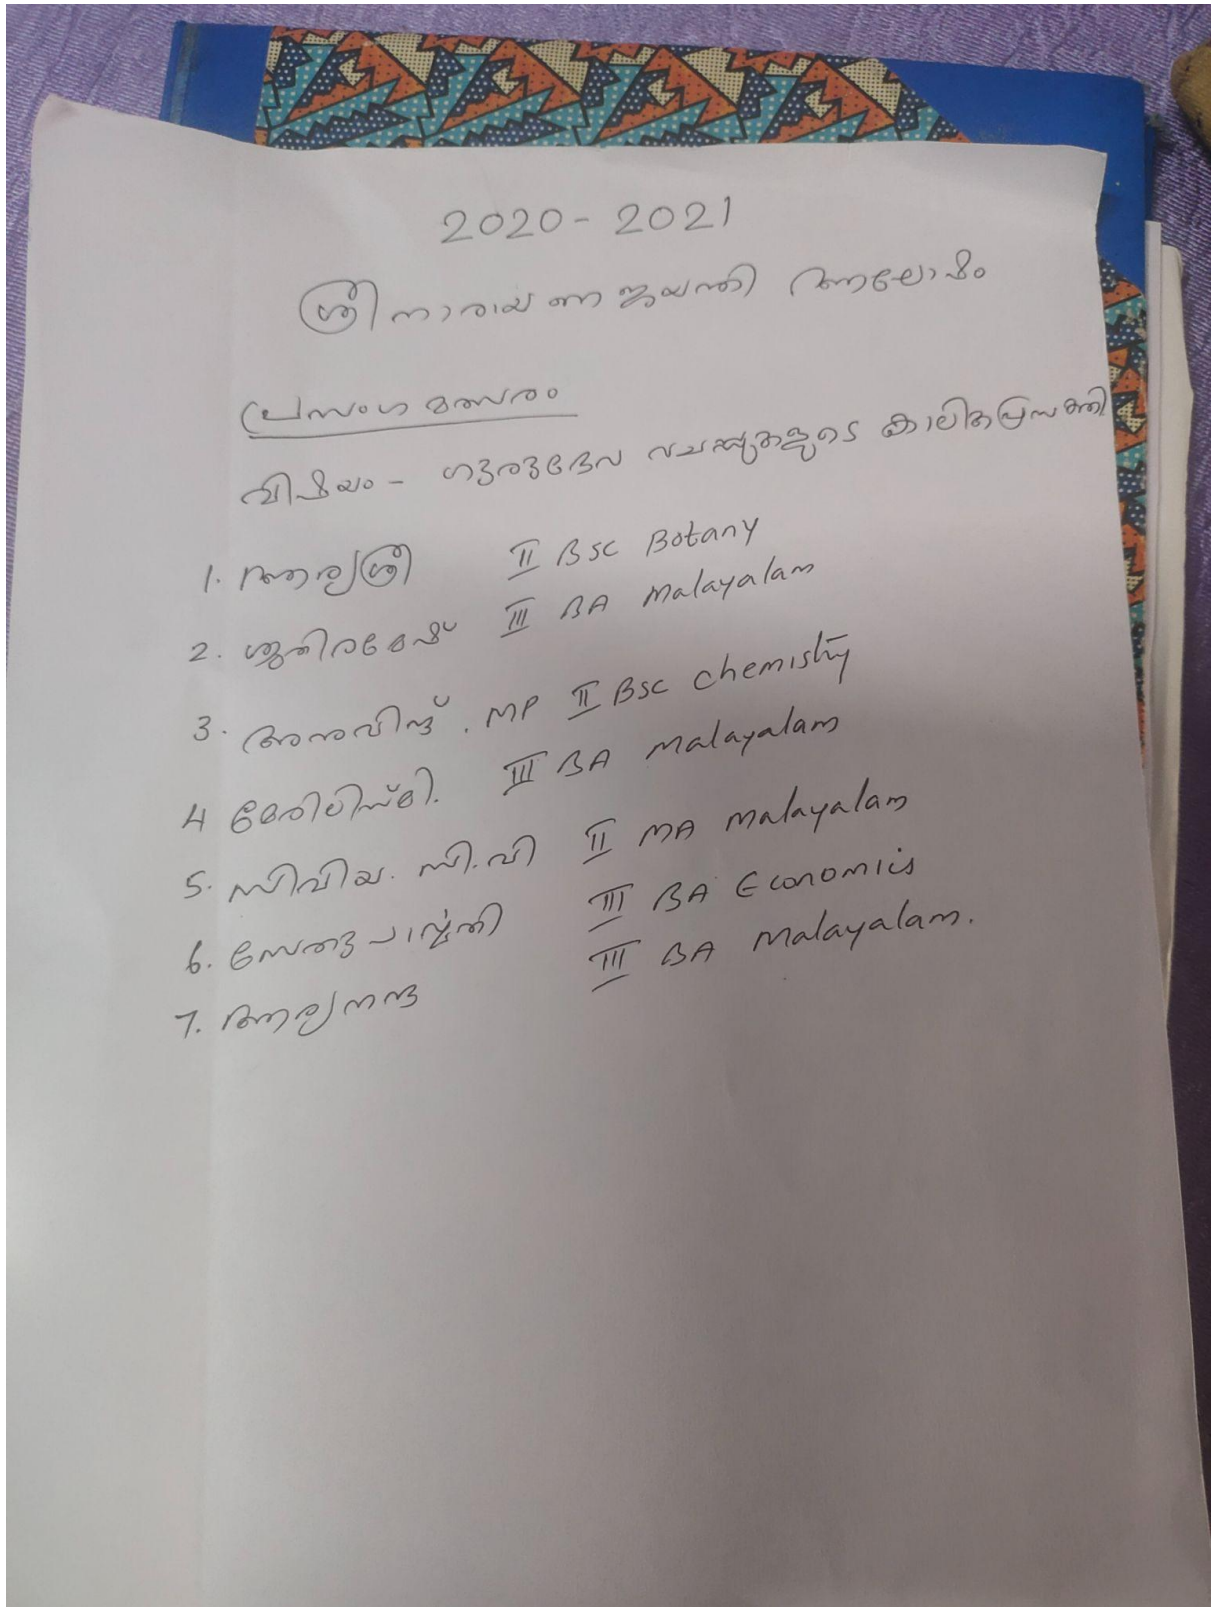 2020 - 2021
ശ്രീനാരായണജയന്തി ആഘോഷം
പ്രസംഗ മത്സരം
വിഷയം - ഗുരുദേവ വചനങ്ങളുടെ കാലികപ്രസക്തി
1. ആര്യശ്രീ II BSC Botany
2. ശ്രുതിരമേഷ് III BA Malayalam
3. അരവിന്ദ്. MP II BSC Chemistry
4 III BA Malayalam
5. സിവിയ. സി.വി II MA Malayalam
6. സേതുപാർവ്വതി III BA Economics
7. ആര്യനന്ദ III BA Malayalam.